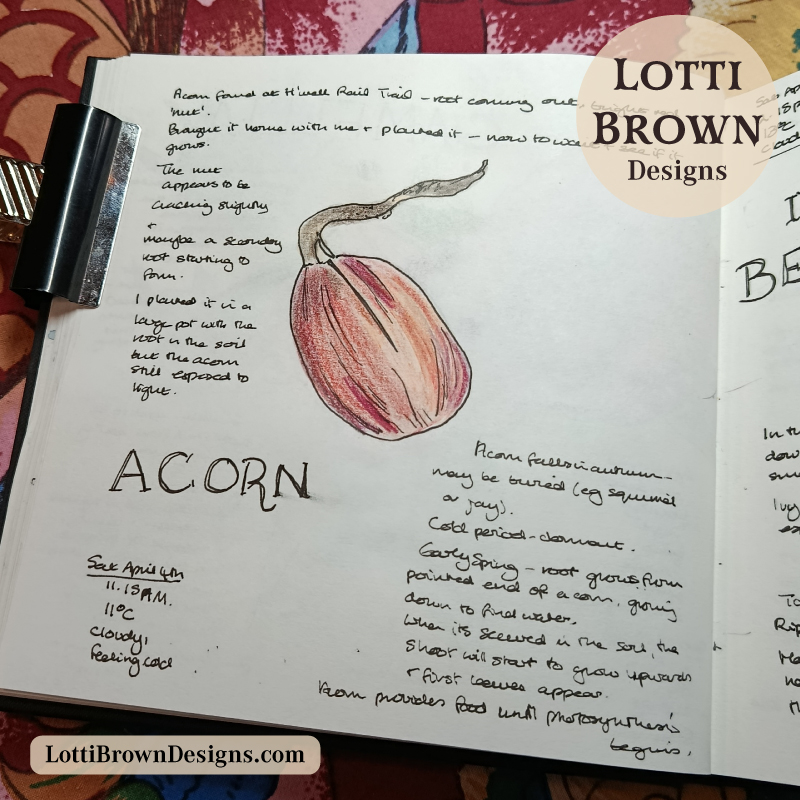 Acorn found at H'well Rail Trail – root coming out, bright red
'nut'.
Brought it home with me + planted it – now to wait + see if it
grows.
The nut
appears to be
cracking slightly
+
maybe a secondary
root starting to
form.
I planted it in a
large pot with the
root in the soil
but the acorn
still exposed to
light.
ACORN
Sat April 4th
11.15AM.
11°C
cloudy,
feeling cold
Acorn falls in autumn –
may be buried (eg squirrel
or jay).
Cold period – dormant.
Early Spring – root grows from
pointed end of acorn, going
down to find water.
When its secured in the soil, the
shoot will start to grow upwards
+ first leaves appear.
Acorn provides food until photosynthesis
begins.
LOTTI
BROWN
Designs
BE
In th
down
Ivy
To
Rip
LottiBrownDesigns.com